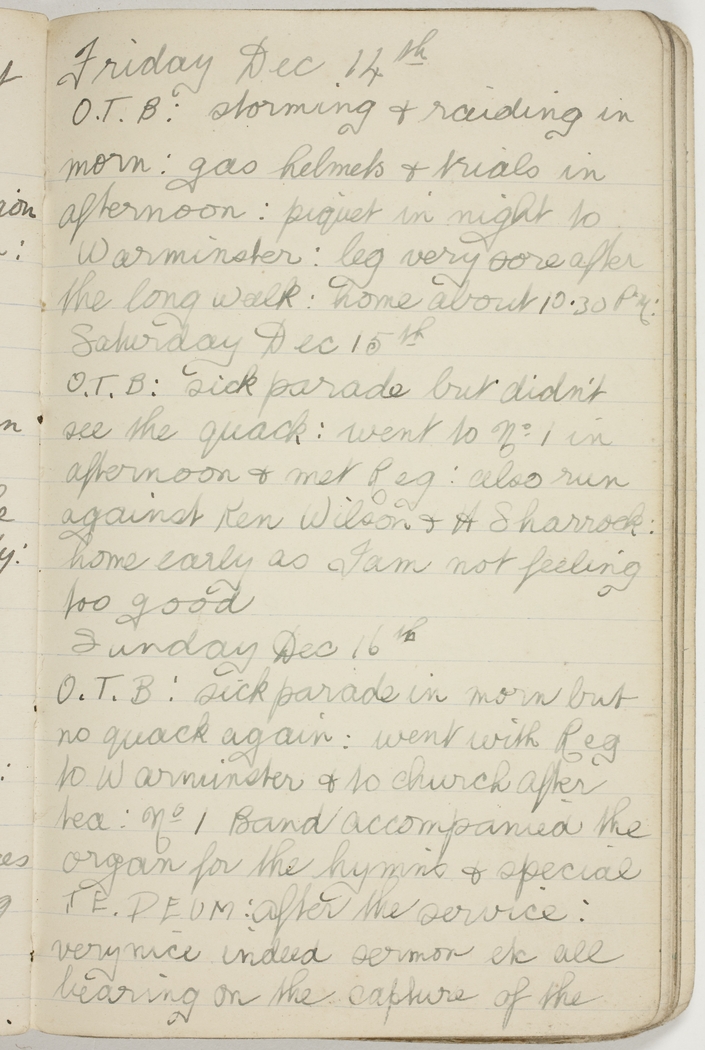 Friday Dec 14th
O.T.B: storming & raiding in
morn: gas helmets & trials in
afternoon: piquet in night to
Warminster: leg very sore after
the long walk: home about 10.30 P.M:
Saturday Dec 15th
O.T.B: sick parade but didn't
see the quack: went to No 1 in
afternoon & met Reg: also run
against Ken Wilson & H Sharrock:
home early as I am not feeling
too good
Sunday Dec 16th
O.T.B: sick parade in morn but
no quack again: went with Reg
to Warminster & to church after
tea: No 1 Band accompanied the
organ for the hymns & special
TE.DEUM: after the service:
very nice indeed sermon etc all
bearing on the capture of the